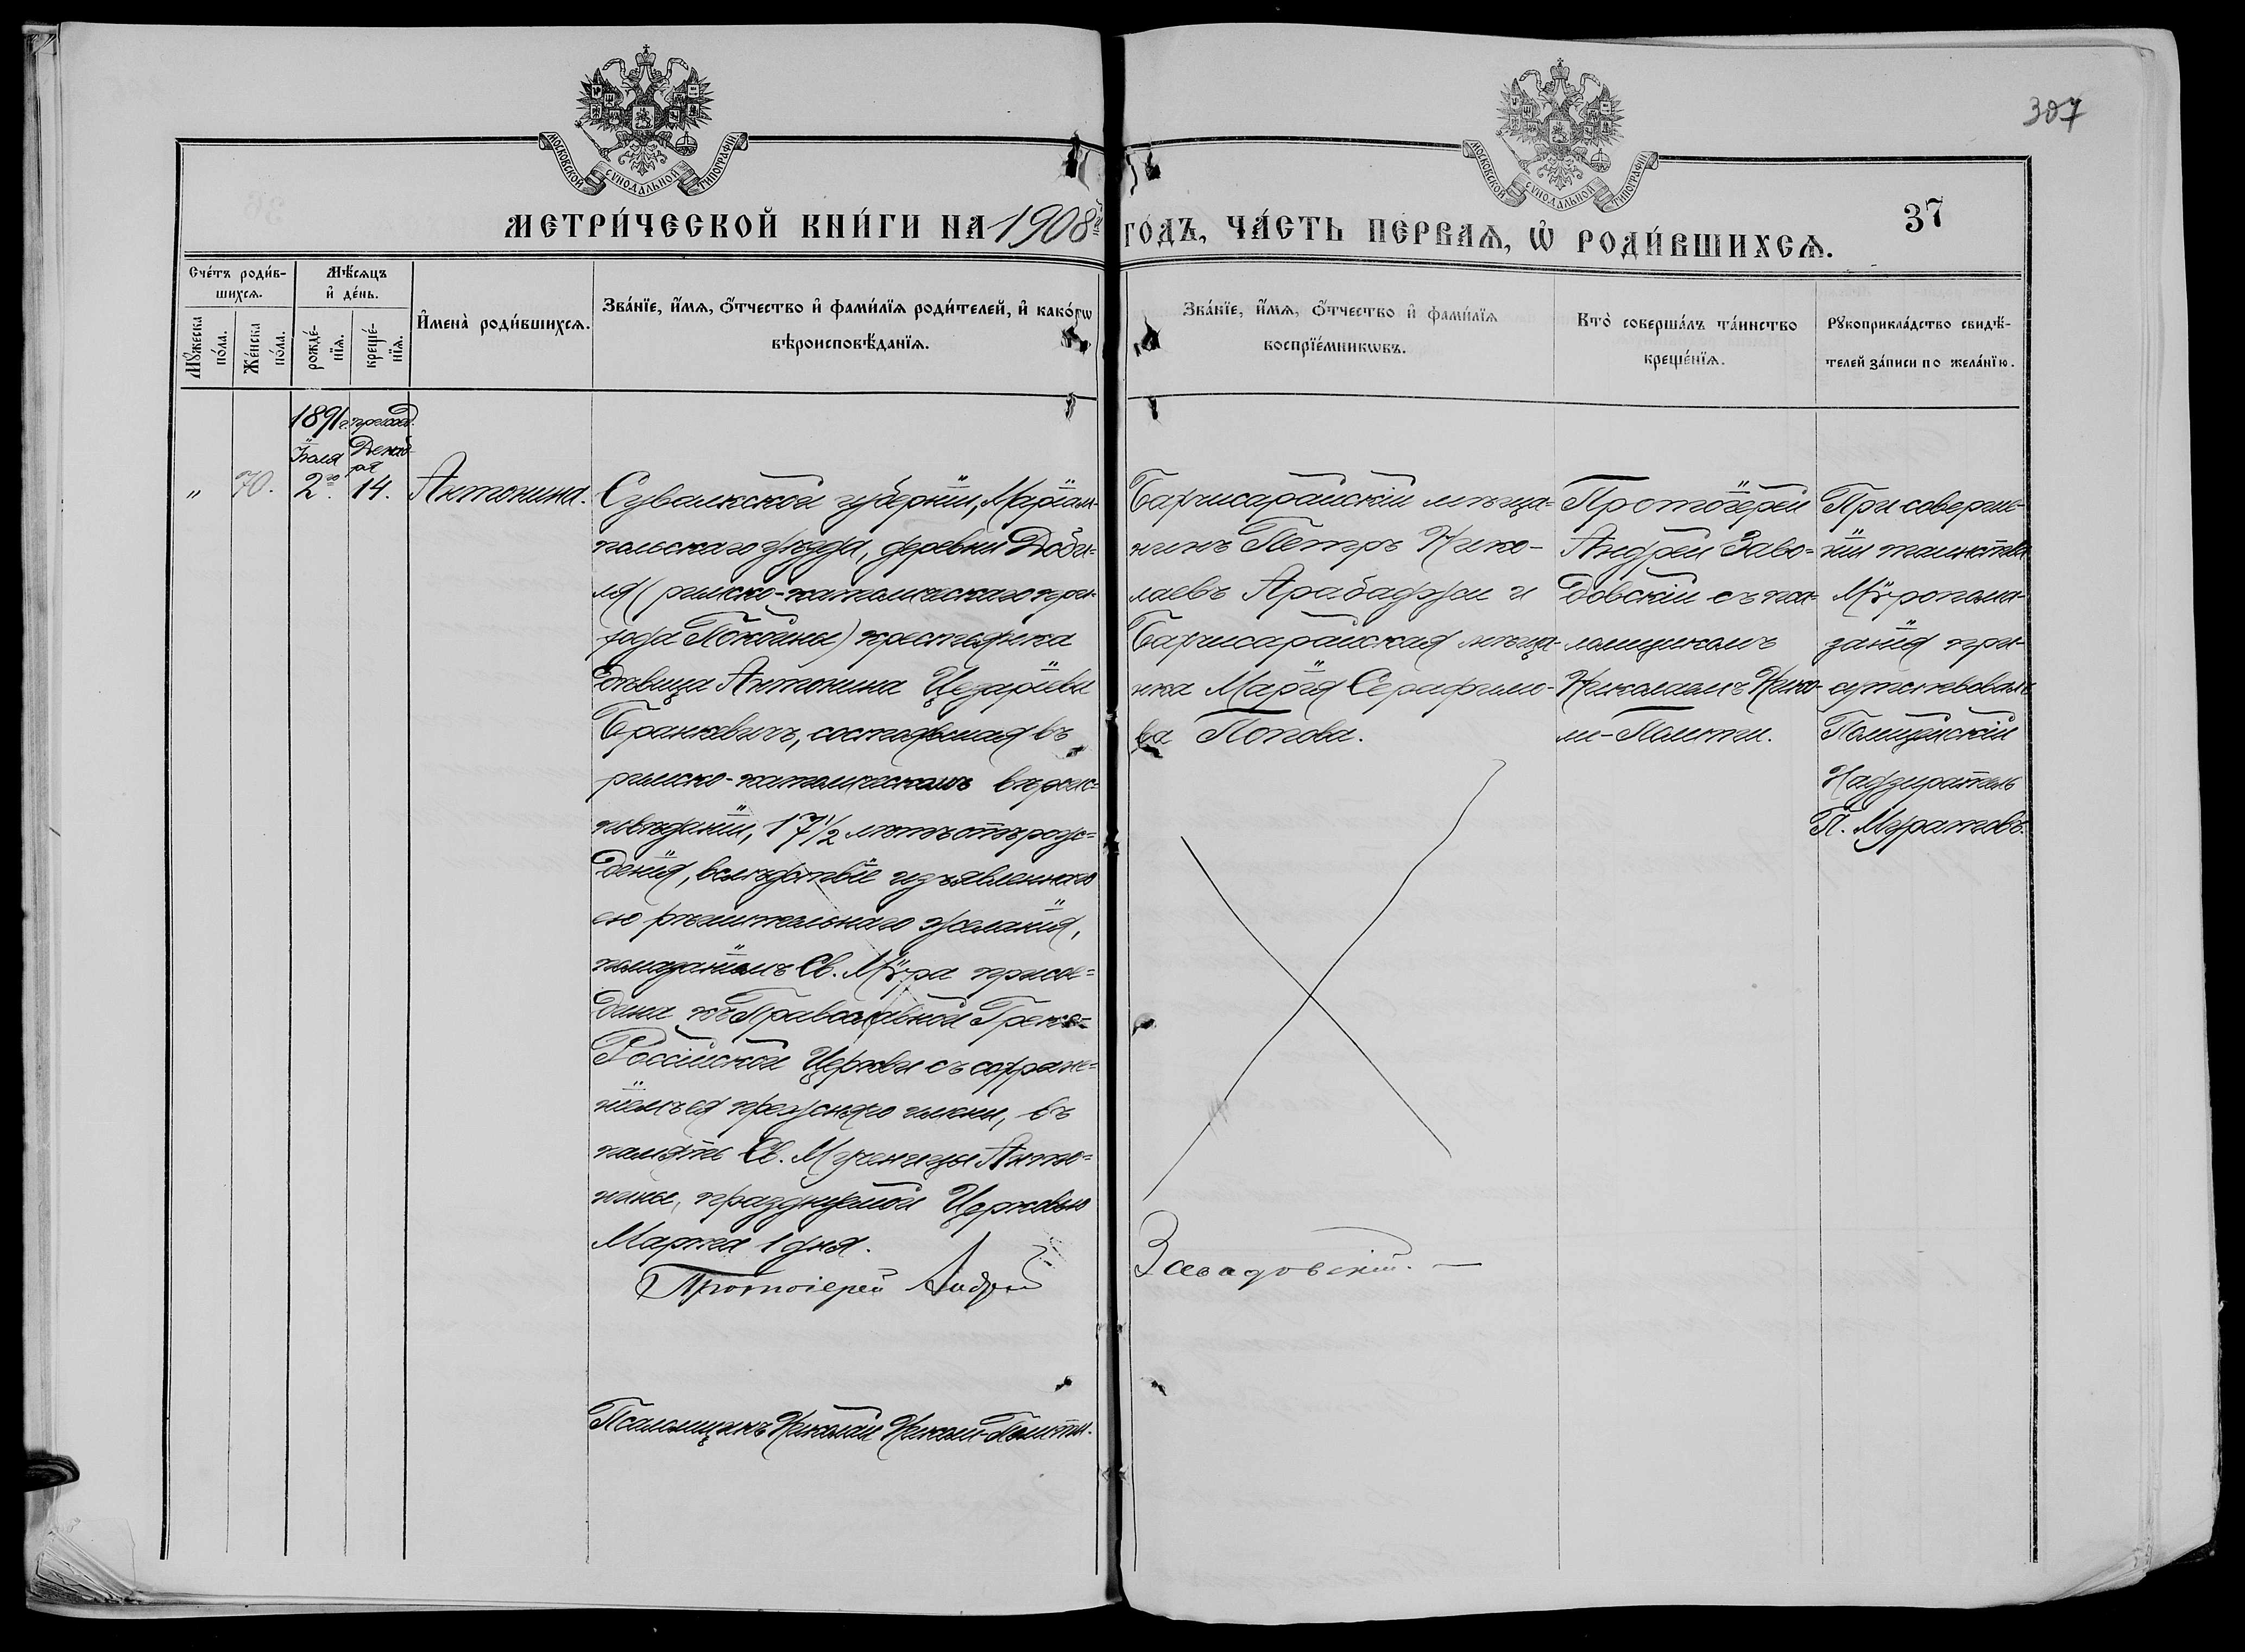 307
МОСКОВСКОЙ СѴНОДАЛЬНОЙ ТИПОГРАФІИ
МОСКОВСКОЙ СѴНОДАЛЬНОЙ ТИПОГРАФІИ
МЕТРИ́ЧЕСКОЙ КНИ́ГИ НА 1908й
ГОДЪ, ЧА́СТЬ ПЕ́РВАѦ, Ѡ҆ РОДИ́ВШИХСѦ.
37
Сче́тъ роди́в-
шихсѧ.
Мꙋ́жеска
по́ла.
Же́нска
по́ла.
Мѣ́сѧцъ
и҆ де́нь.
рожде́-
нїѧ.
креще́-
нїѧ.
И҆мена̀ роди́вшихсѧ.
Зва́нїе, и҆́мѧ, ѻ҆́тчество и҆ фами́лїѧ роди́телей, и҆ како́гѡ
вѣроисповѣ́данїѧ.
Зва́нїе, и҆́мѧ, ѻ҆́тчество и҆ фами́лїѧ
воспрїе́мникѡвъ.
Кто̀ соверша́лъ та́инство
креще́нїѧ.
Рꙋкоприкла́дство свидѣ́-
телей за́писи по жела́нїю.
1891 г.
Іюля
2го
присоед.
Декаб-
ря
14.
„
70.
Антонина.
Сувалкской губерніи, Маріам-
польскаго уѣзда, деревни Доби-
ля (римско-католическаго при-
хода Покойны) крестьянка
дѣвица Антонина Цезаріева
Бранкевичъ, состоявшая въ
римско-католическомъ вѣроис-
повѣданіи, 17 1/2 лѣтъ отъ рож-
денія, вслѣдствіе изъявленнаго
ею рѣшительнаго желанія,
помазаніемъ Св. Мѵра присое-
динена къ Православной Греко-
Россійской Церкви съ сохране-
ніемъ ея прежняго имени, въ
память Св. Мученицы Анто-
нины, празднуемой Церковью
Марта 1 дня.
Протоіерей Андрей
Псаломщикъ Николай Николи-Памити.
Бахчисарайскій мѣща-
нинъ Петръ Нико-
лаевъ Арабаджи и
Бахчисарайская мѣща-
нка Марія Серафимо-
ва Попова.
Завадовскій.
Протоіерей
Андрей Заво-
довскій съ пса-
ломщикомъ
Николаемъ Нико-
ли-Памити.
При соверше-
ніи таинства
Мѵропома-
занія при-
сутствовалъ
Полицейскій
Надзиратель
П. Муратовъ.